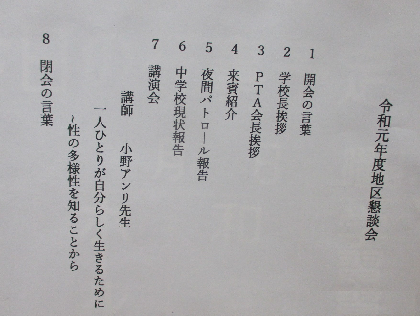 令和元年度地区懇談会
1 開会の言葉
2 学校長挨拶
3 PTA会長挨拶
4 来賓紹介
5 夜間パトロール報告
6 中学校現状報告
7 講演会
講師 小野アンリ先生
一人ひとりが自分らしく生きるために
~性の多様性を知ることから
8 閉会の言葉